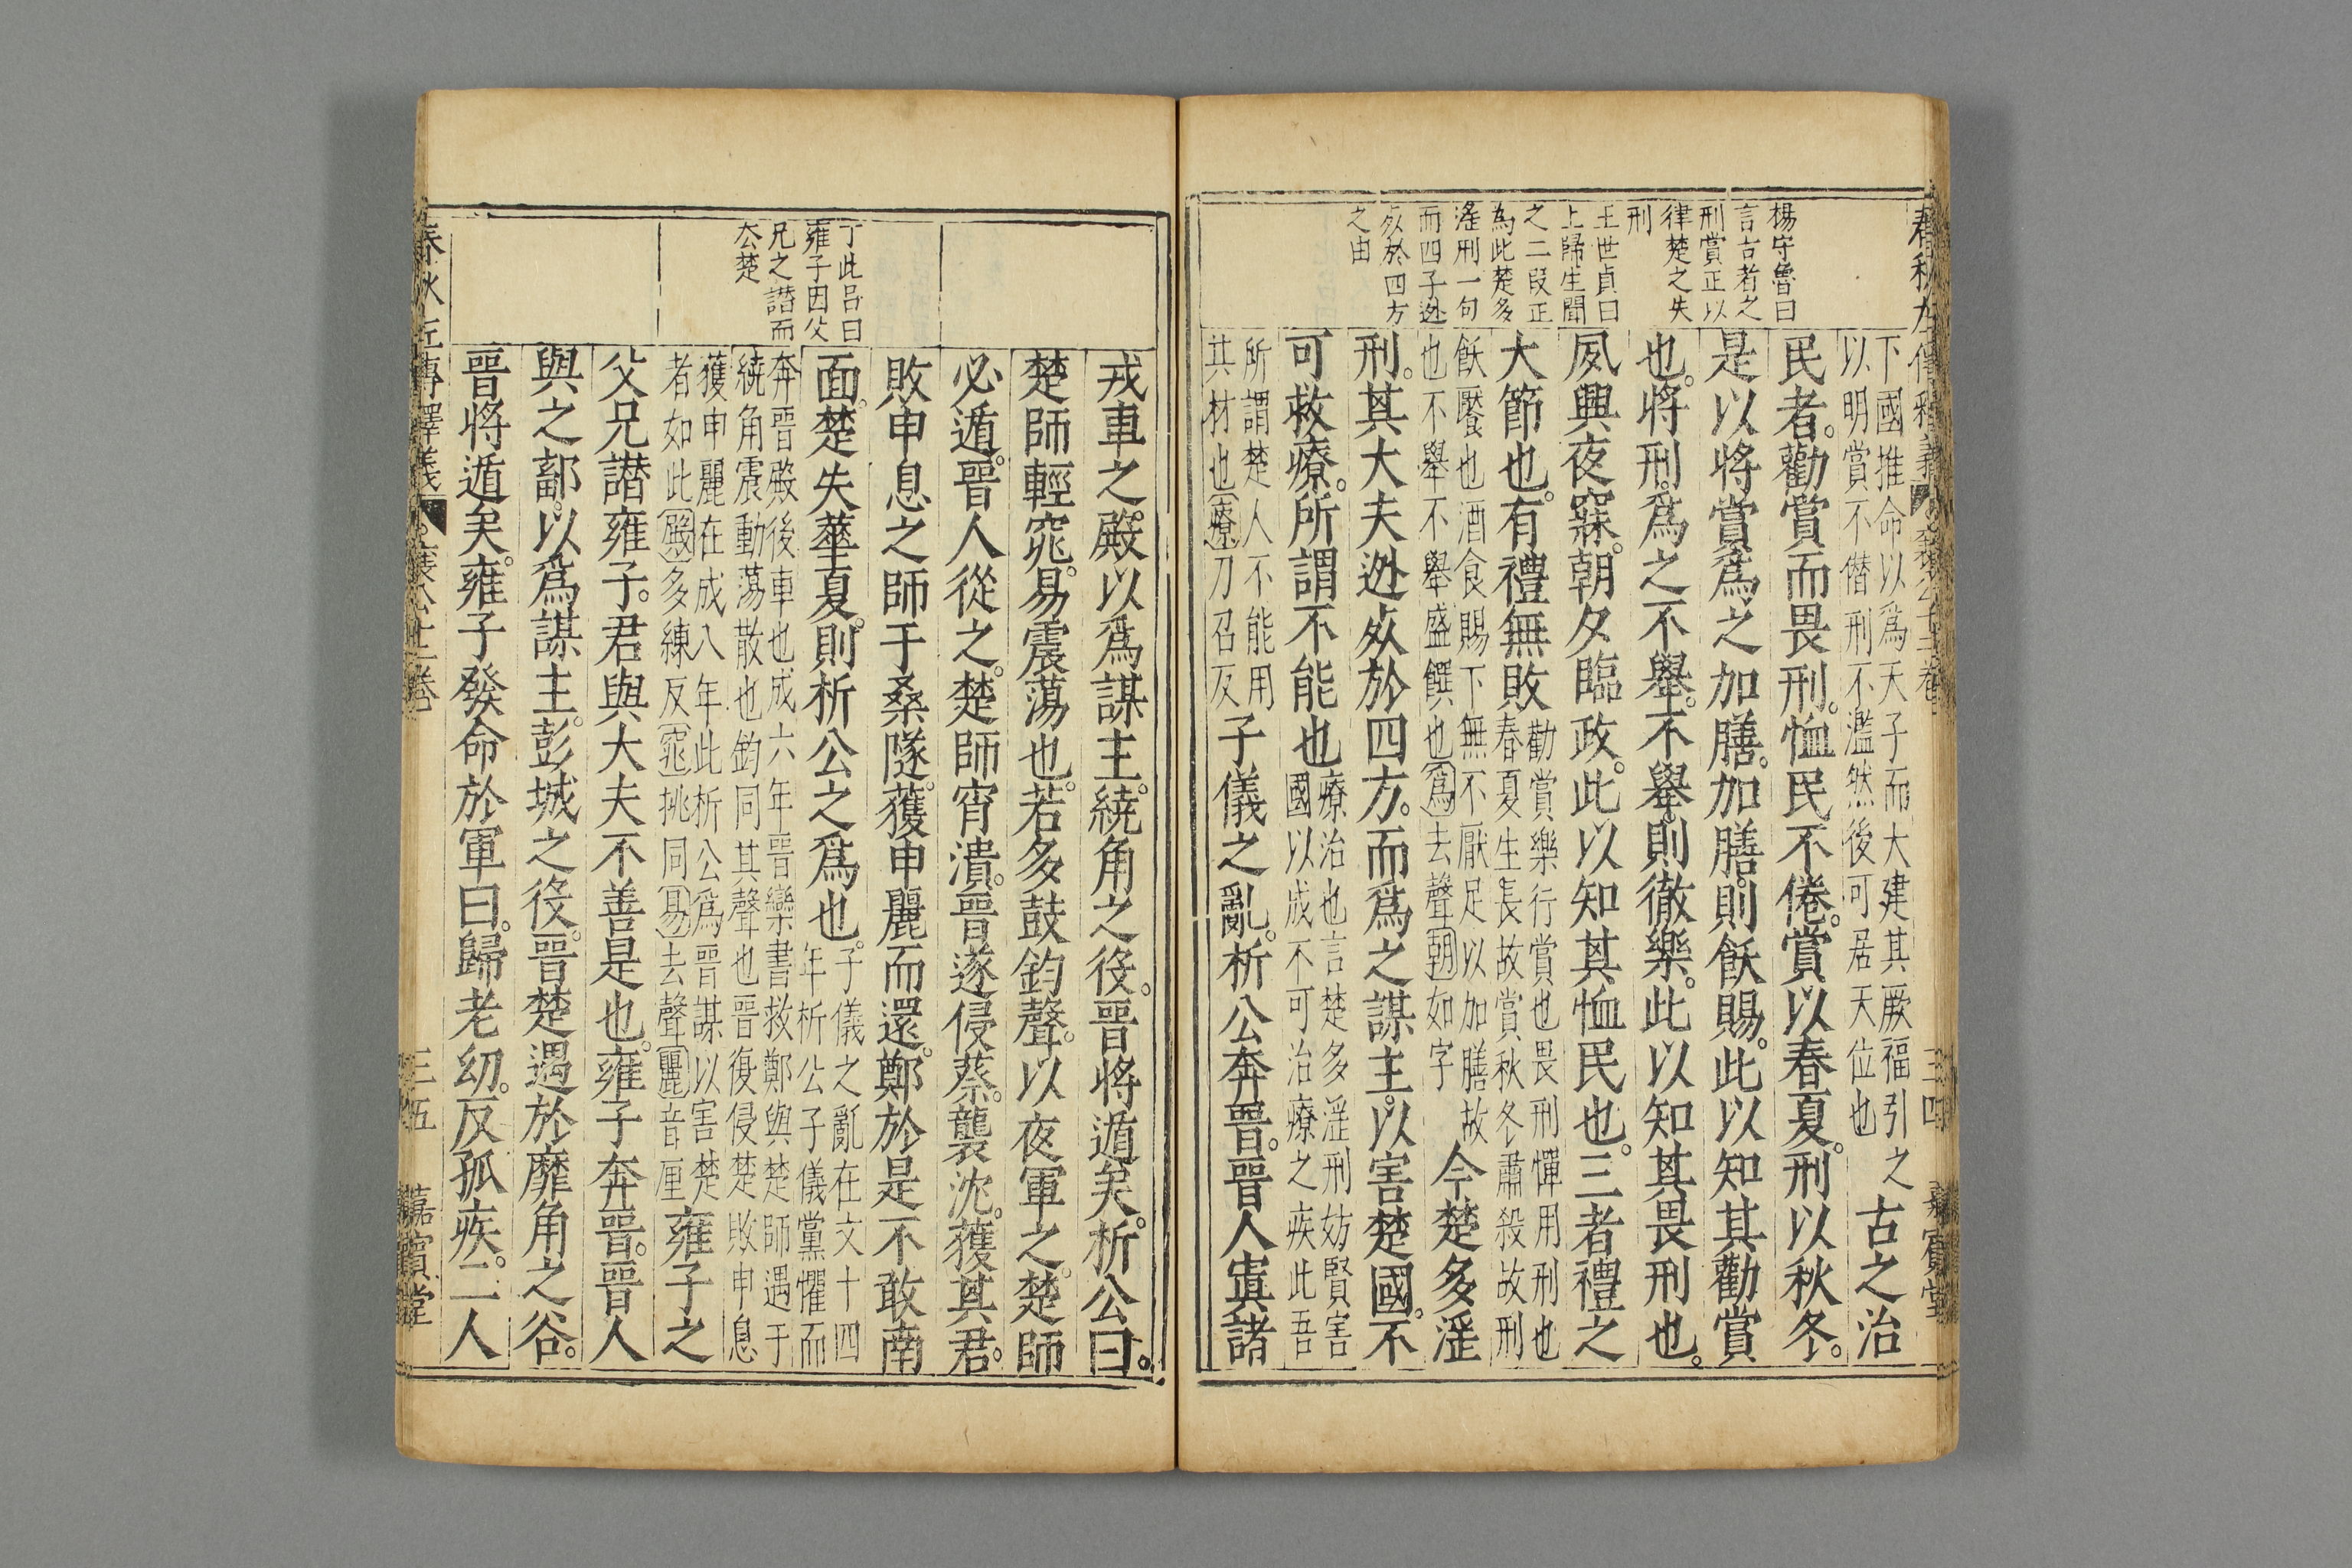 楊守魯曰
言古者之
刑賞正以
律楚之失
刑
王世貞曰
上歸生聞
之二段正
為此楚多
淫刑一句
而四子迯
死於四方
之由
下國推命以爲天子而大建其厥福引之
以明賞不僭刑不濫然後可居天位也
古之治
民者。勸賞而畏刑。恤民不倦。賞以春夏。刑以秋冬。
是以將賞爲之加膳。加膳則飫賜。此以知其勸賞
也。將刑爲之不舉。不舉則徹樂。此以知其畏刑也。
夙興夜寐。朝夕臨政。此以知其恤民也。三者禮之
大節也。有禮無敗
勸賞樂行賞也畏刑憚用刑也
春夏生長故賞秋冬肅殺故刑
飫饜也酒食賜下無不厭足以加膳故
也不舉不舉盛饌也爲去聲朝如字
今楚多淫
刑。其大夫迯死於四方。而爲之謀主。以害楚國。不
可救療。所謂不能也
療治也言楚多淫刑妨賢害
國以成不可治療之疾此吾
所謂楚人不能用
其材也療刀召反
子儀之亂。析公奔晉。晉人寘諸
春秋左傳釋義
三四
嘉賓堂
丁此呂曰
雍子因父
兄之譖而
去楚
戎車之殿。以爲謀主。繞角之役。晉將遁矣。析公曰。
楚師輕窕。易震蕩也。若多鼓鈞聲。以夜軍之。楚師
必遁。晉人從之。楚師宵潰。晉遂侵蔡。襲沈。獲其君。
敗申息之師于桑隧。獲申麗而還。鄭於是不敢南
面。楚失華夏。則析公之爲也
子儀之亂在文十四
年析公子儀黨懼而
奔晉殿後車也成六年晉欒書救鄭與楚師遇于
繞角震動蕩散也鈞同其聲也晉復侵楚敗申息
獲申麗在成八年此析公爲晉謀以害楚
者如此殿多練反窕挑同易去聲麗音厘
雍子之
父兄譖雍子。君與大夫不善是也。雍子奔晉。晉人
與之鄐。以爲謀主。彭城之役。晉楚遇於靡角之谷。
晉將遁矣。雍子發命於軍曰。歸老幼。反孤疾。二人
春秋左傳釋義
襄公十二卷
三五
嘉賓堂